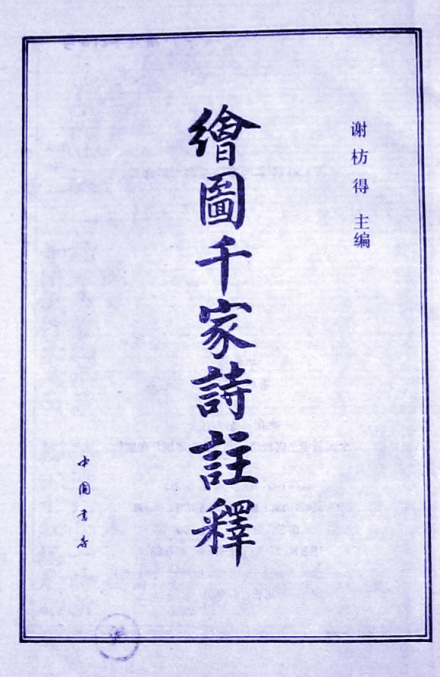 谢枋得 主编
繪圖千家詩註釋
中国書店